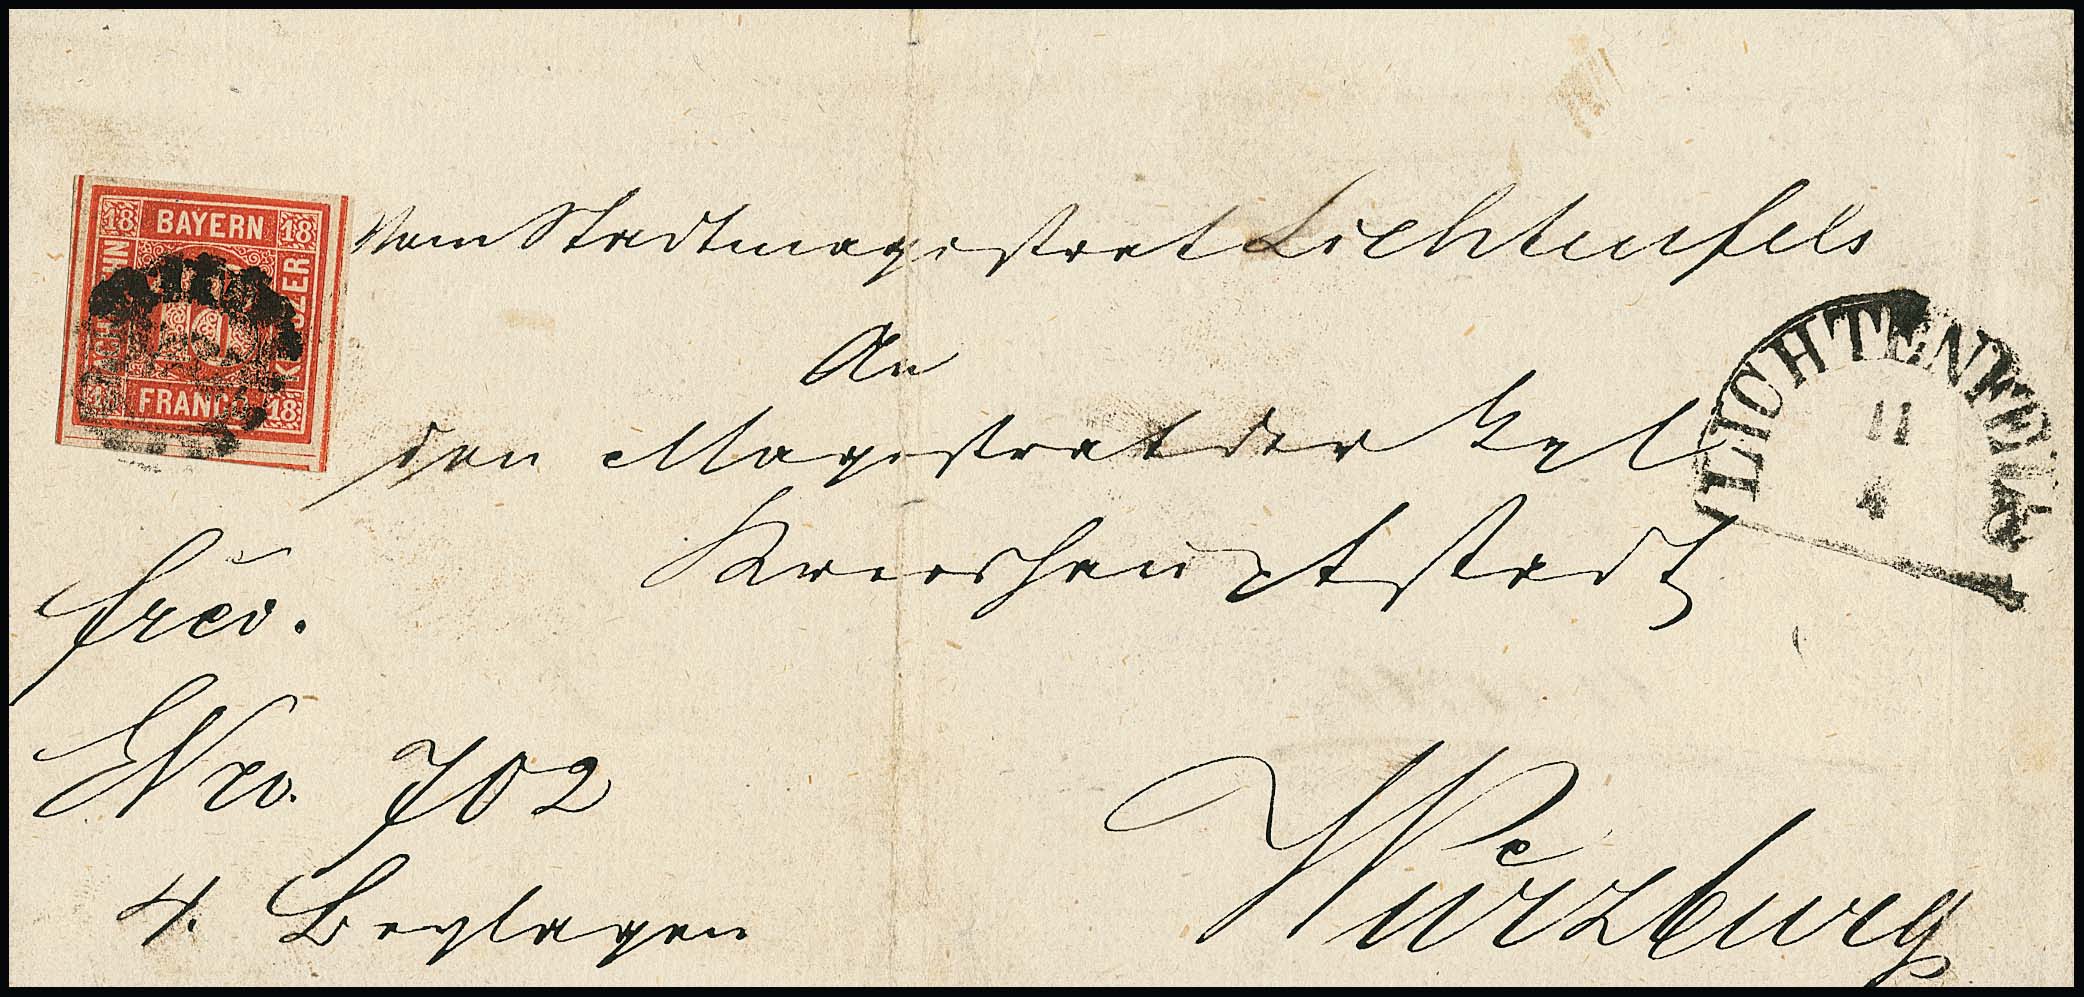 18 BAYERN 18
ACHTZEHN
KREUZER
18 FRANCO 18
Vom Stadtmagistrat Lichtenfels
An
den Magistrat der Kgl
Kreishauptstadt
LICHTENFELS
11
4
frei.
ENro. 702
4. Beylagen
Würzburg